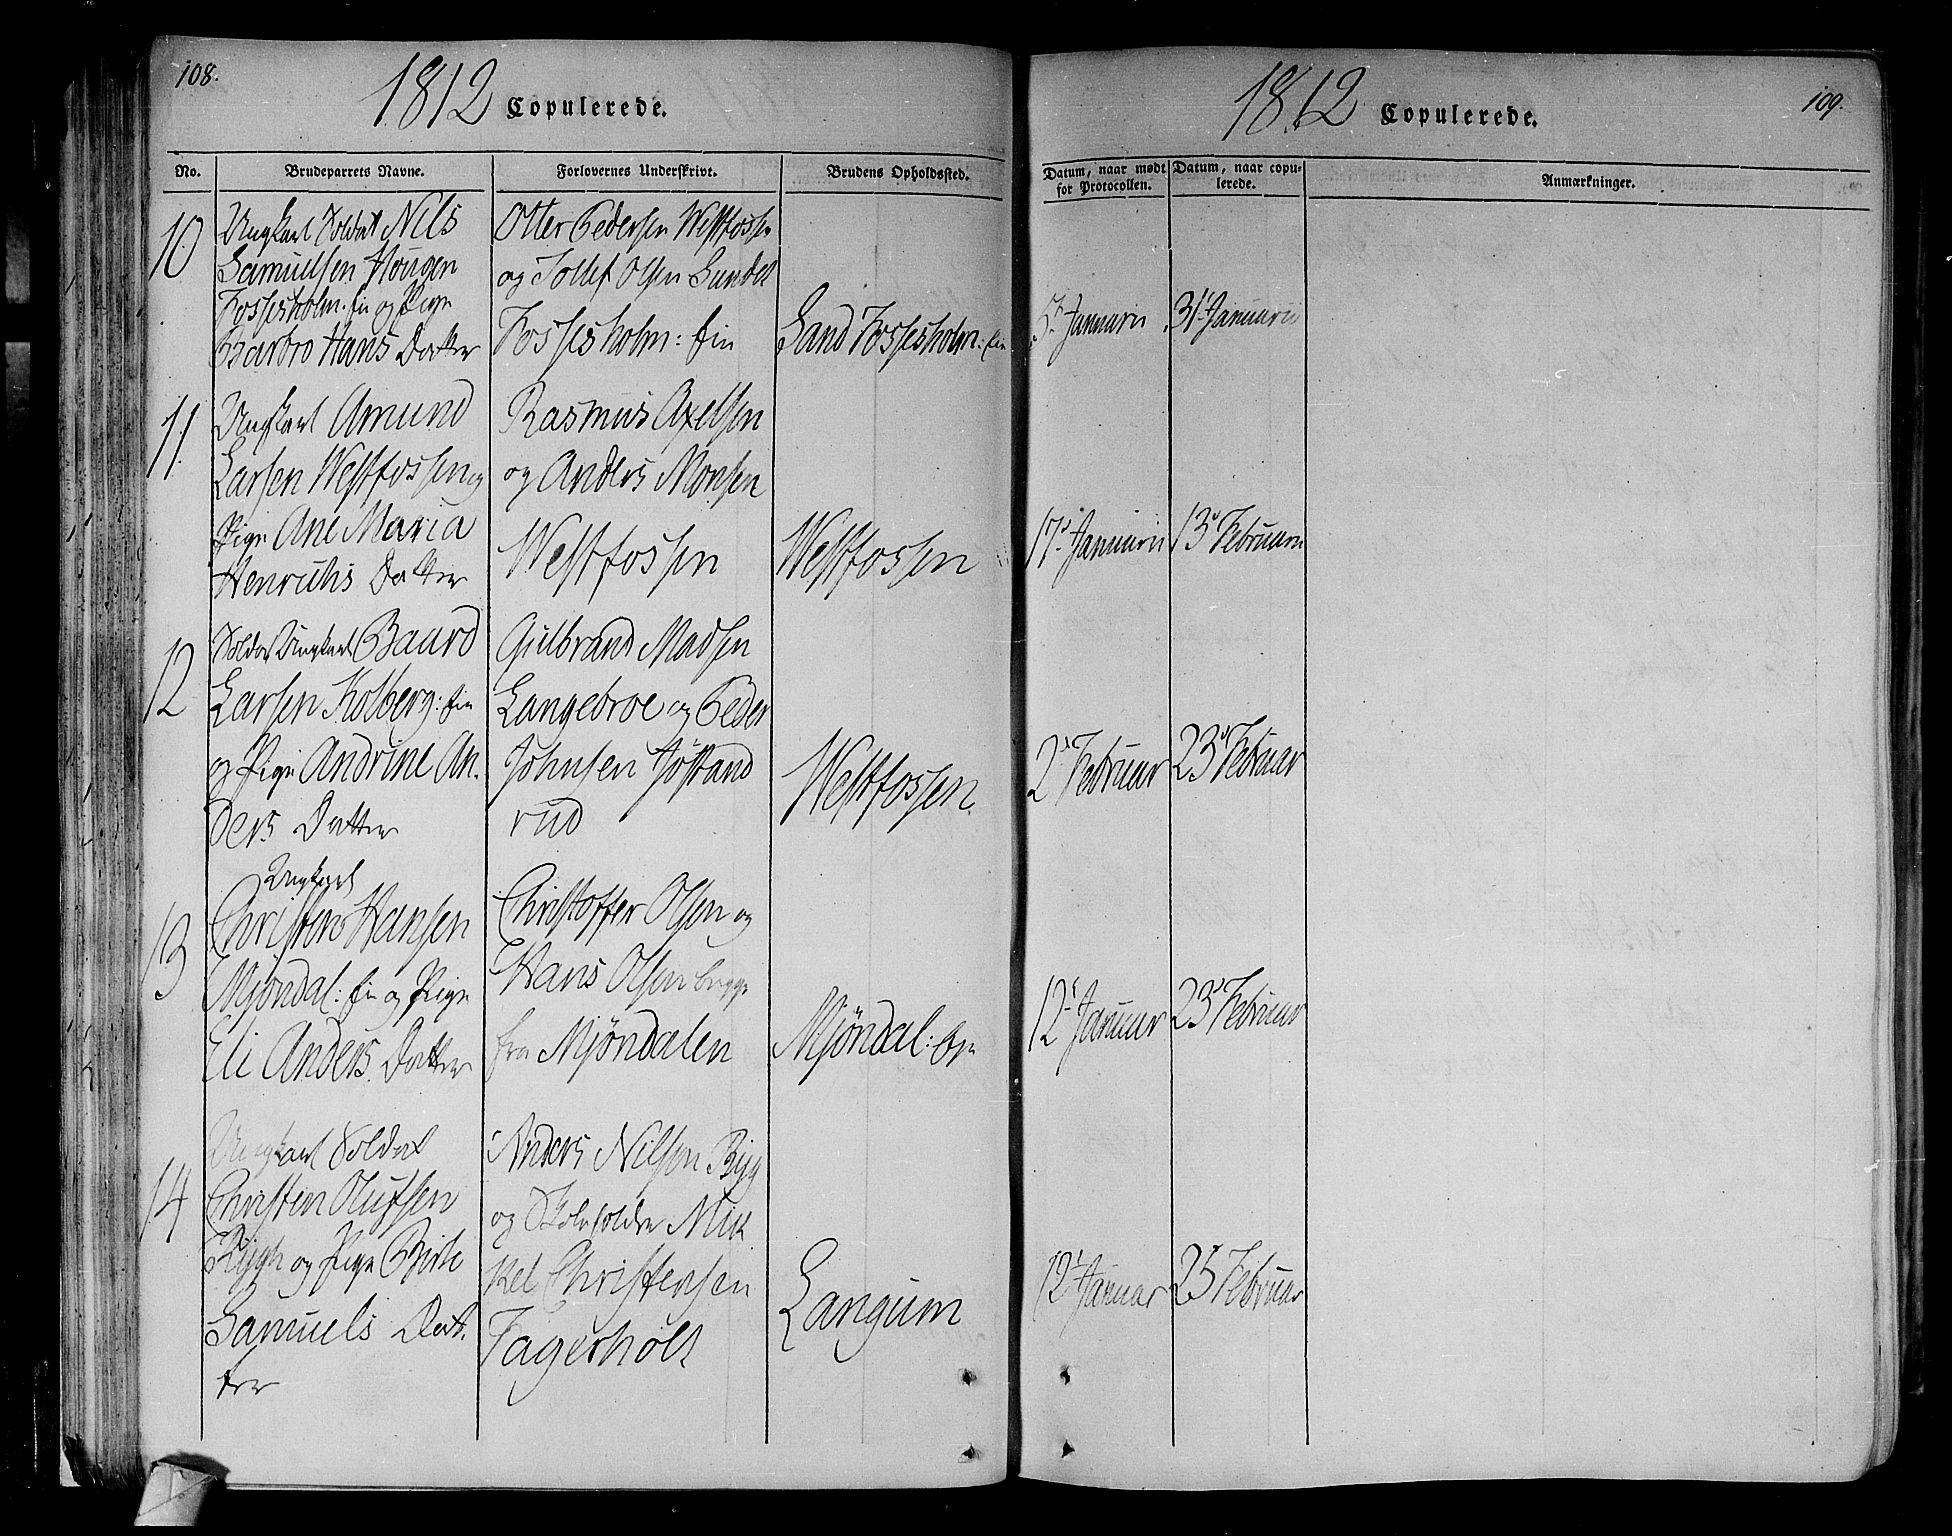 108.
1812 Copulerede.
No.
Brudeparrets Navne.
Forlovernes Underskrivt.
Brudens Opholdssted.
10
Ungkarl Soldat Nils
Samuelsen Hougen
Fossesholm: Ein og Pige
Barbro Hans Datter
Otter Pedersen Westfossen
og Tollef Olsen Sundet
Fossesholm: Ein
Sand Fossesholm: Ein
11
Ungkarl Amund
Larsen Westfossen og
Pige Ane Maria
Henrichs Datter
Rasmus Axelsen
og Anders Monsen
Westfossen
Westfossen
12
Soldat Ungkarl Baard
Larsen Kolberg: Ein
og Pige Andrine An-
ders Datter
Gulbrand Madsen
Langebroe og Peder
Johnsen Jøstand
rud
Westfossen.
13
Ungkarl
Christen Hansen
Mjöndal: Ein og Pige
Eli Anders Datter
Christoffer Olsen og
Hans Olsen begge
fra Mjöndalen
Mjöndal:
14
Ungkarl Soldat
Christen Olufsen
Rygh og Pige Birte
Samuels Dat-
ter
Anders Nilsen Ryg
og Skoleholder Mik
kel Christensen
Fagerholt
Langum
1812 Copulerede.
109.
Datum, naar mødt
for Protocollen.
Datum, naar copu-
lerede.
Anmærkninger.
5 Januarii
31 Januarii
17 Januarii
13 Februarii
2 Februar
23 Februar
12 Januar
23 Februar
12 Januar
25 Februar